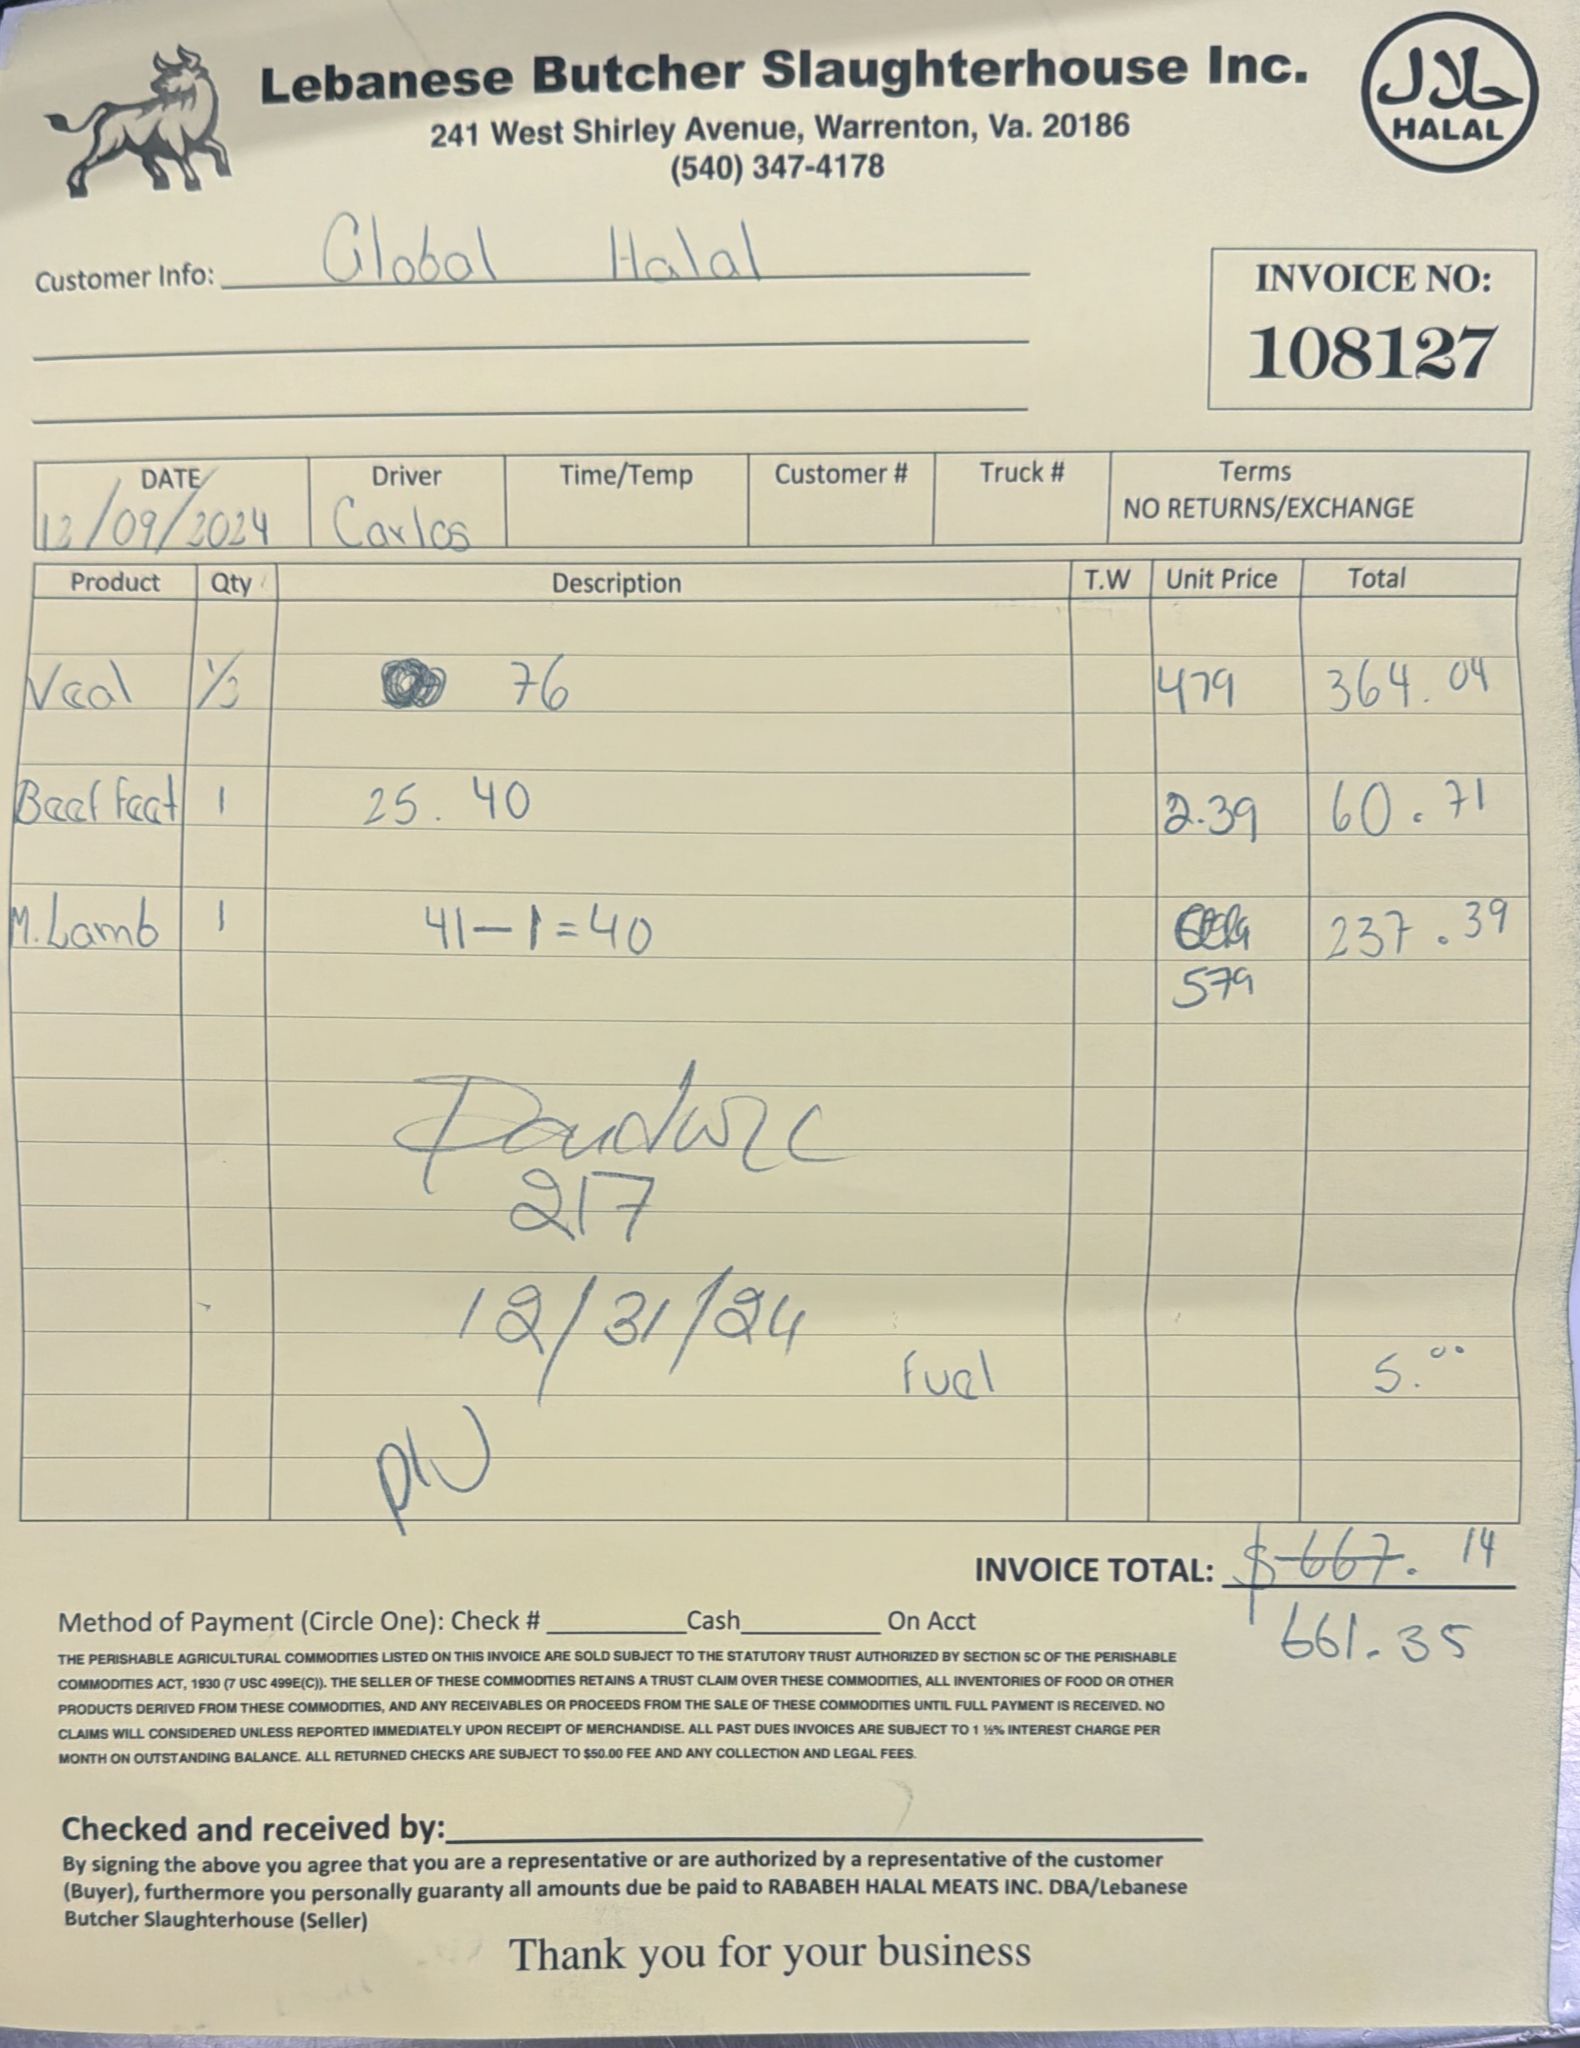 Lebanese Butcher Slaughterhouse Inc.
241 West Shirley Avenue, Warrenton, Va. 20186
(540) 347-4178
حلال
HALAL
Customer Info: Global Halal
INVOICE NO:
108127
DATE Driver Time/Temp Customer # Truck # Terms
NO RETURNS/EXCHANGE
12/09/2024 Carlos
Product Qty Description T.W Unit Price Total
Veal 1/2 76 479 364.04
Beef feet 1 25.40 2.39 60.71
M. Lamb 1 41-1=40 237.39
579
217
12/31/24
Fuel 5.00
INVOICE TOTAL: $ 667.14
661.35
Method of Payment (Circle One): Check # Cash On Acct
THE PERISHABLE AGRICULTURAL COMMODITIES LISTED ON THIS INVOICE ARE SOLD SUBJECT TO THE STATUTORY TRUST AUTHORIZED BY SECTION 5C OF THE PERISHABLE
COMMODITIES ACT, 1930 (7 USC 499E(C)). THE SELLER OF THESE COMMODITIES RETAINS A TRUST CLAIM OVER THESE COMMODITIES, ALL INVENTORIES OF FOOD OR OTHER
PRODUCTS DERIVED FROM THESE COMMODITIES, AND ANY RECEIVABLES OR PROCEEDS FROM THE SALE OF THESE COMMODITIES UNTIL FULL PAYMENT IS RECEIVED. NO
CLAIMS WILL CONSIDERED UNLESS REPORTED IMMEDIATELY UPON RECEIPT OF MERCHANDISE. ALL PAST DUES INVOICES ARE SUBJECT TO 1 ½% INTEREST CHARGE PER
MONTH ON OUTSTANDING BALANCE. ALL RETURNED CHECKS ARE SUBJECT TO $50.00 FEE AND ANY COLLECTION AND LEGAL FEES.
Checked and received by:
By signing the above you agree that you are a representative or are authorized by a representative of the customer
(Buyer), furthermore you personally guaranty all amounts due be paid to RABABEH HALAL MEATS INC. DBA/Lebanese
Butcher Slaughterhouse (Seller)
Thank you for your business